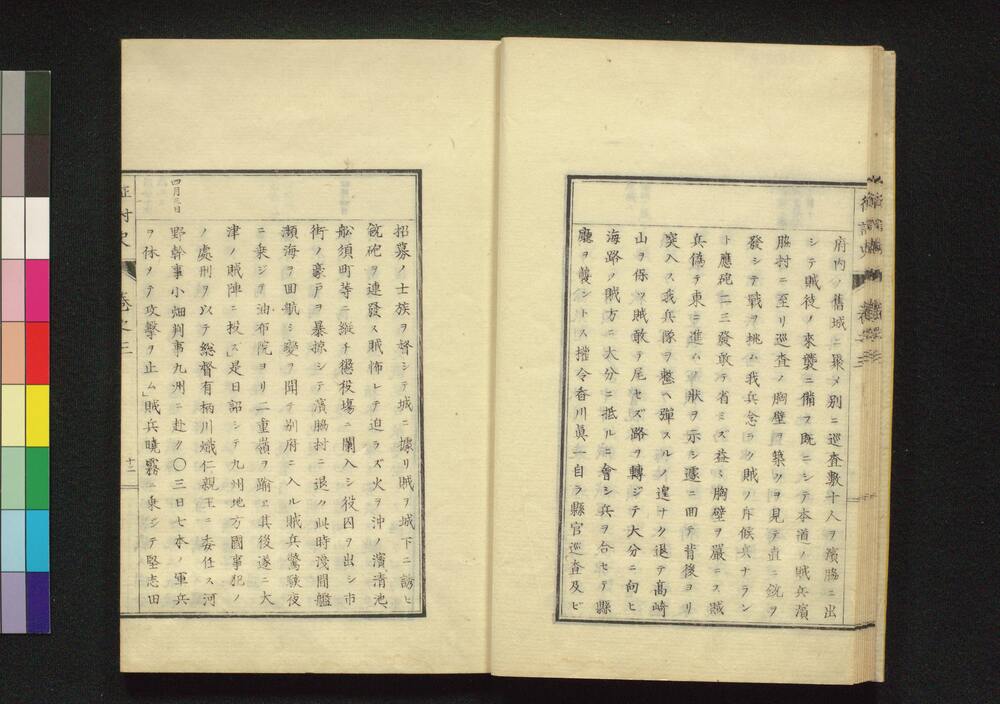 府内ノ舊城ニ聚メ別ニ巡査數十人ヲ濱脇ニ出
シテ賊徒ノ來襲ニ備フ既ニシテ本道ノ賊兵濱
脇村ニ至リ巡査ノ胸壁ヲ築クヲ見テ直ニ銃ヲ
發シテ戰ヲ挑ム我兵念ラク賊ノ斥候兵ナラン
ト應砲二三發敢テ省ミズ益〻胸壁ヲ嚴ニス賊
兵僞テ東ニ進ムノ狀ヲ示シ遽ニ回テ背後ヨリ
突入ス我兵隊ヲ整ヘ彈スルノ遑ナク退テ高崎
山ヲ保ツ賊敢テ尾セズ路ヲ轉ジテ大分ニ向ヒ
海路ノ賊方ニ大分ニ抵ルニ會シ兵ヲ合セテ縣
廳ヲ襲ントス權令香川眞一自ラ縣官巡査及ビ
招募ノ士族ヲ督シテ城ニ據リ賊ヲ城下ニ誘ヒ
銃砲ヲ連發ス賊怖レテ迫ラズ火ヲ沖ノ濱清池
船須町等ニ縱チ懲役塲ニ闌入シ役囚ヲ出シ市
街ノ豪戸ヲ暴掠シテ濱脇村ニ退ク此時淺間艦
瀬海ヲ回航シ變ヲ聞テ別府ニ入ル賊兵驚駭夜
ニ乗ジテ油布院ヨリ二重嶺ヲ踰エ其後遂ニ大
津ノ賊陣ニ投ズ是日詔シテ九州地方國事犯ノ
ノ處刑ヲ以テ総督有栖川熾仁親王ニ委任ス河
四月三日
野幹事小畑判事九州ニ赴ク〇三日七本ノ軍兵
ヲ休メテ攻擊ヲ止ム賊兵曉霧ニ乗シテ堅志田
征討史 巻之三
十二